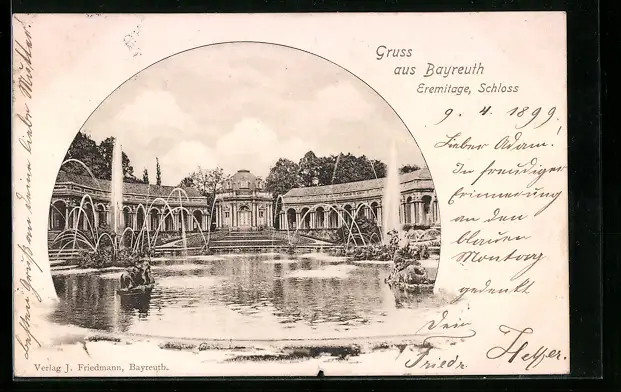 Gruss
aus Bayreuth
Eremitage, Schloss
9. 4. 1899
Lieber Adam!
In freudiger
Erinnerung
an den
blauen
Montag
gedenkt
Dein
Friedr.
Verlag J. Friedmann, Bayreuth.
Gruß an Deine liebe Mutter.